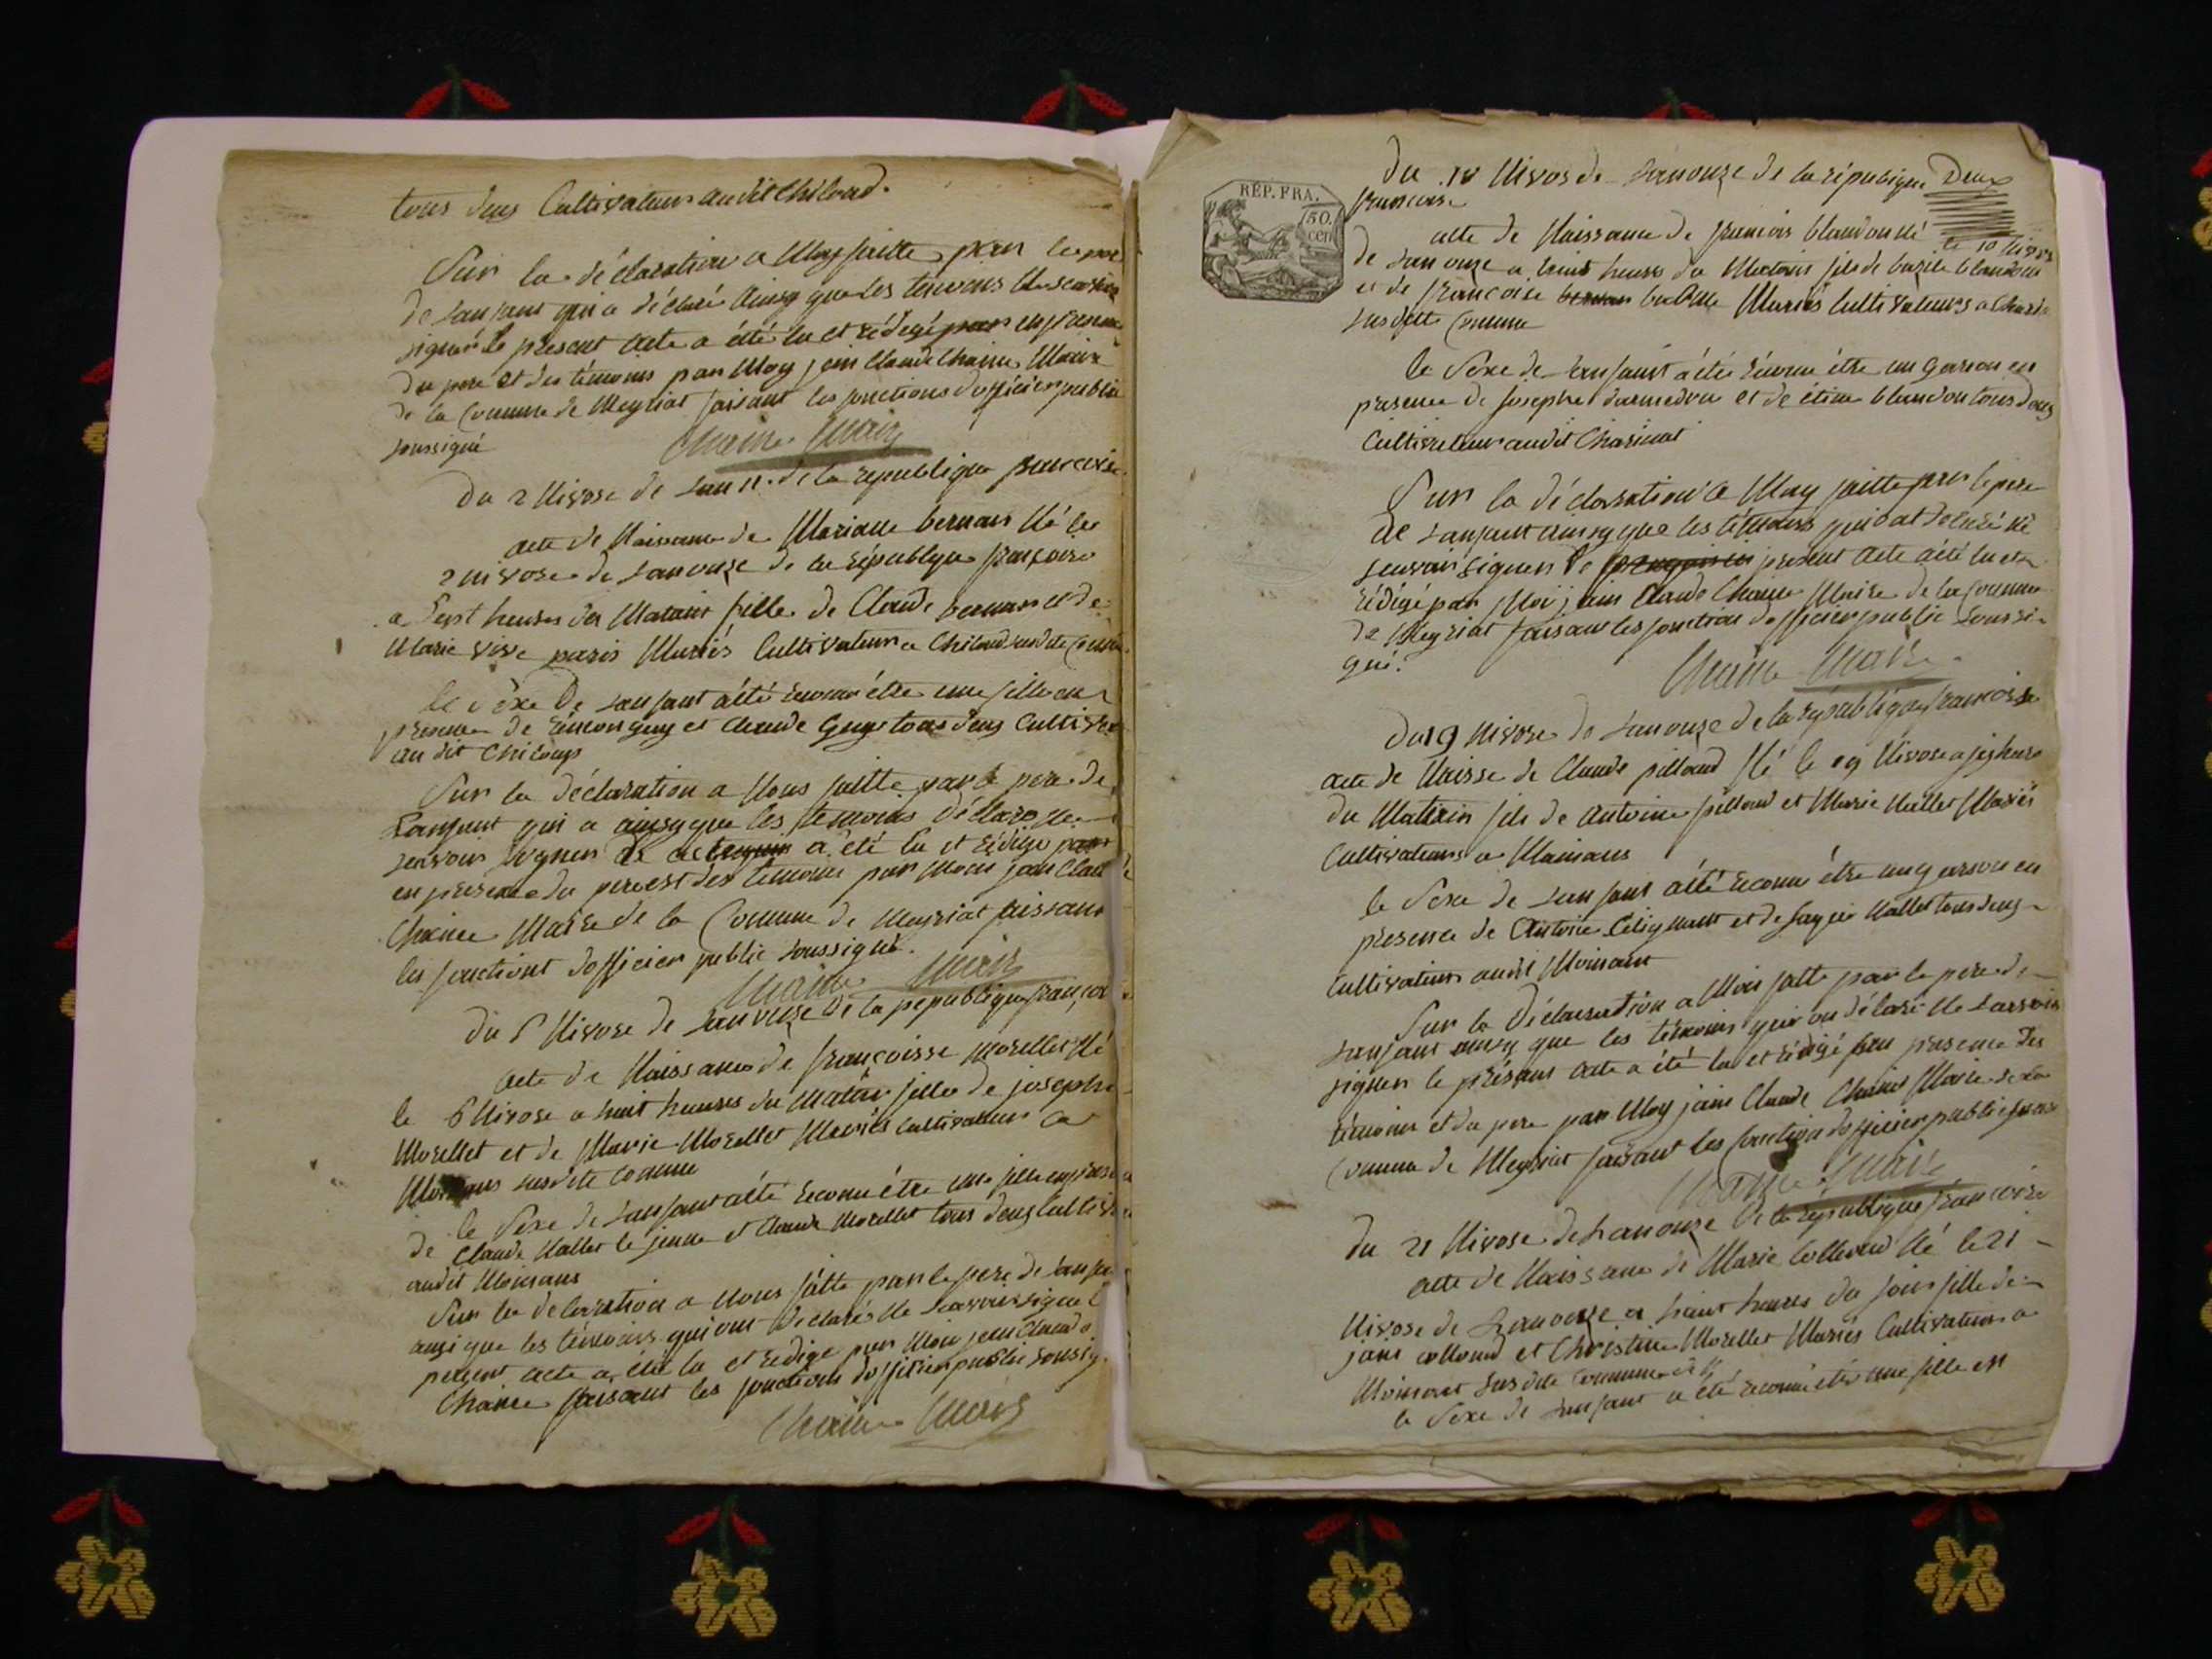 tous deus Cultivateurs audit Chiloud.
Sur la déclaration a Moy faitte par le per
de Lanfant qui a déclaré Ainsy que les temoins Ne scavoir
signer le présent acte a été lu et rédigé par en presence
du pere et des témoins par Moy jean Claude Chaine Maire
de la Comune de Meyriat faisant les fonctions dofficier public
soussigné
Chaine Maire
Du 2 Nivose de Lan 11. de la republique francoise
acte de Naissance de Mariane bernan Né le
2 nivose de Lanonze de la républque françoise
a Sept heures du Matain fille de Claude bernan et de
Marie vive Mariés Cultivateurs a Chiloud susdite Comune
le Séxe De Lanfant a été reconu étre une fille en
presence de guy et Claude Guy tous deus Cultiva
au dit Chiloup
Sur la déclaration a Nous faitte par le pere de
Lanfant qui a ainsy que les temoins déclaré Ne
scavoir signer a été lu et rédigé par
en presence du pere et des temoins par Moi jean Clau
Chaine Maire de la Comune de Meyriat faissant
les fonctions dofficier public soussigné.
Chaine Maire
du 6 Nivose de Lanonze De la republique françoi
acte de Naissance de françoisse Morellet Né
le 6 Nivose a huit heures du Matain fille de josephe
Morellet et de Marie Morellet Mariés Cultivateurs a
susdite Comune
le Séxe de Lanfant a été reconu étre une fille en presen
de Claude Nallet le jeune et Claude Morellet tous deus Cultiv
audit Moinans
Sur la declaration a Nous faitte par le pere de Lanfa
ausi que les témoins qui ont Déclaré Ne scavoir signer l
present acte a été lu et redige par Moi jean Claude
Chaine faisant les fonctions dofficier public sousig
Chaine Maire
REP. FRA.
50. cen
Deux
Du 18 Nivos de Lanonze de la répubique
francoise
atte de Naissance de francois blandon Né le 10 Nivose
de Lan onze a huit heures du Matain fils de bazile blandon
et de francoise Mariés Cultivateurs a
susditte Comune
le Séxe de Lanfant a été réconu étre un garson en
presence de Josephe et de étiene blandon tous deus
Cultivateurs audit Charinat
Sur la déclaration a Moy faitte par le pere
de Lanfant ainsy que les témoins qui ont declaré né
scavoir signer le present acte a été lu et
rédigé par Moi jain Claude Chaine Maire de la Comune
de Meyriat faisant les fonction dofficier public soussi
gné.
Chaine Maire
Du 19 Nivose de Lanonze de la republique francoisse
acte de Naisse de Claude pilloud Né le 19 Nivose a sis heures
du Mattain fils de Antoine pilloud et Marie Nallet Mariés
Cultivateurs a Moinans
le Séxe de Lanfant a été reconu étre un garson en
presence de Antoine et de Nallet tous deus
Cultivateurs audit Moinant
Sur la Déclaration a Moi faitte par le pere de
Lanfant ainsy que les témoins qui on déclaré Ne scavoir
signer le présent acte a été lu et rédigé en presence des
témoins et du pere par Moy jain Claude Chaine Maire de la
Comune de Meyriat faisant les fonction dofficier public
Chaine Maire
du 21 Nivose de Lanonze De la republique francoise
atte de Naissance de Marie Colloud Né le 21
Nivose de Lanonze a huit heures du soir fille de
jain colloud et Christine Morellet Mariés Cultivateurs a
Moinant susdite Comune
le Séxe de Lanfant a été reconu étre une fille en